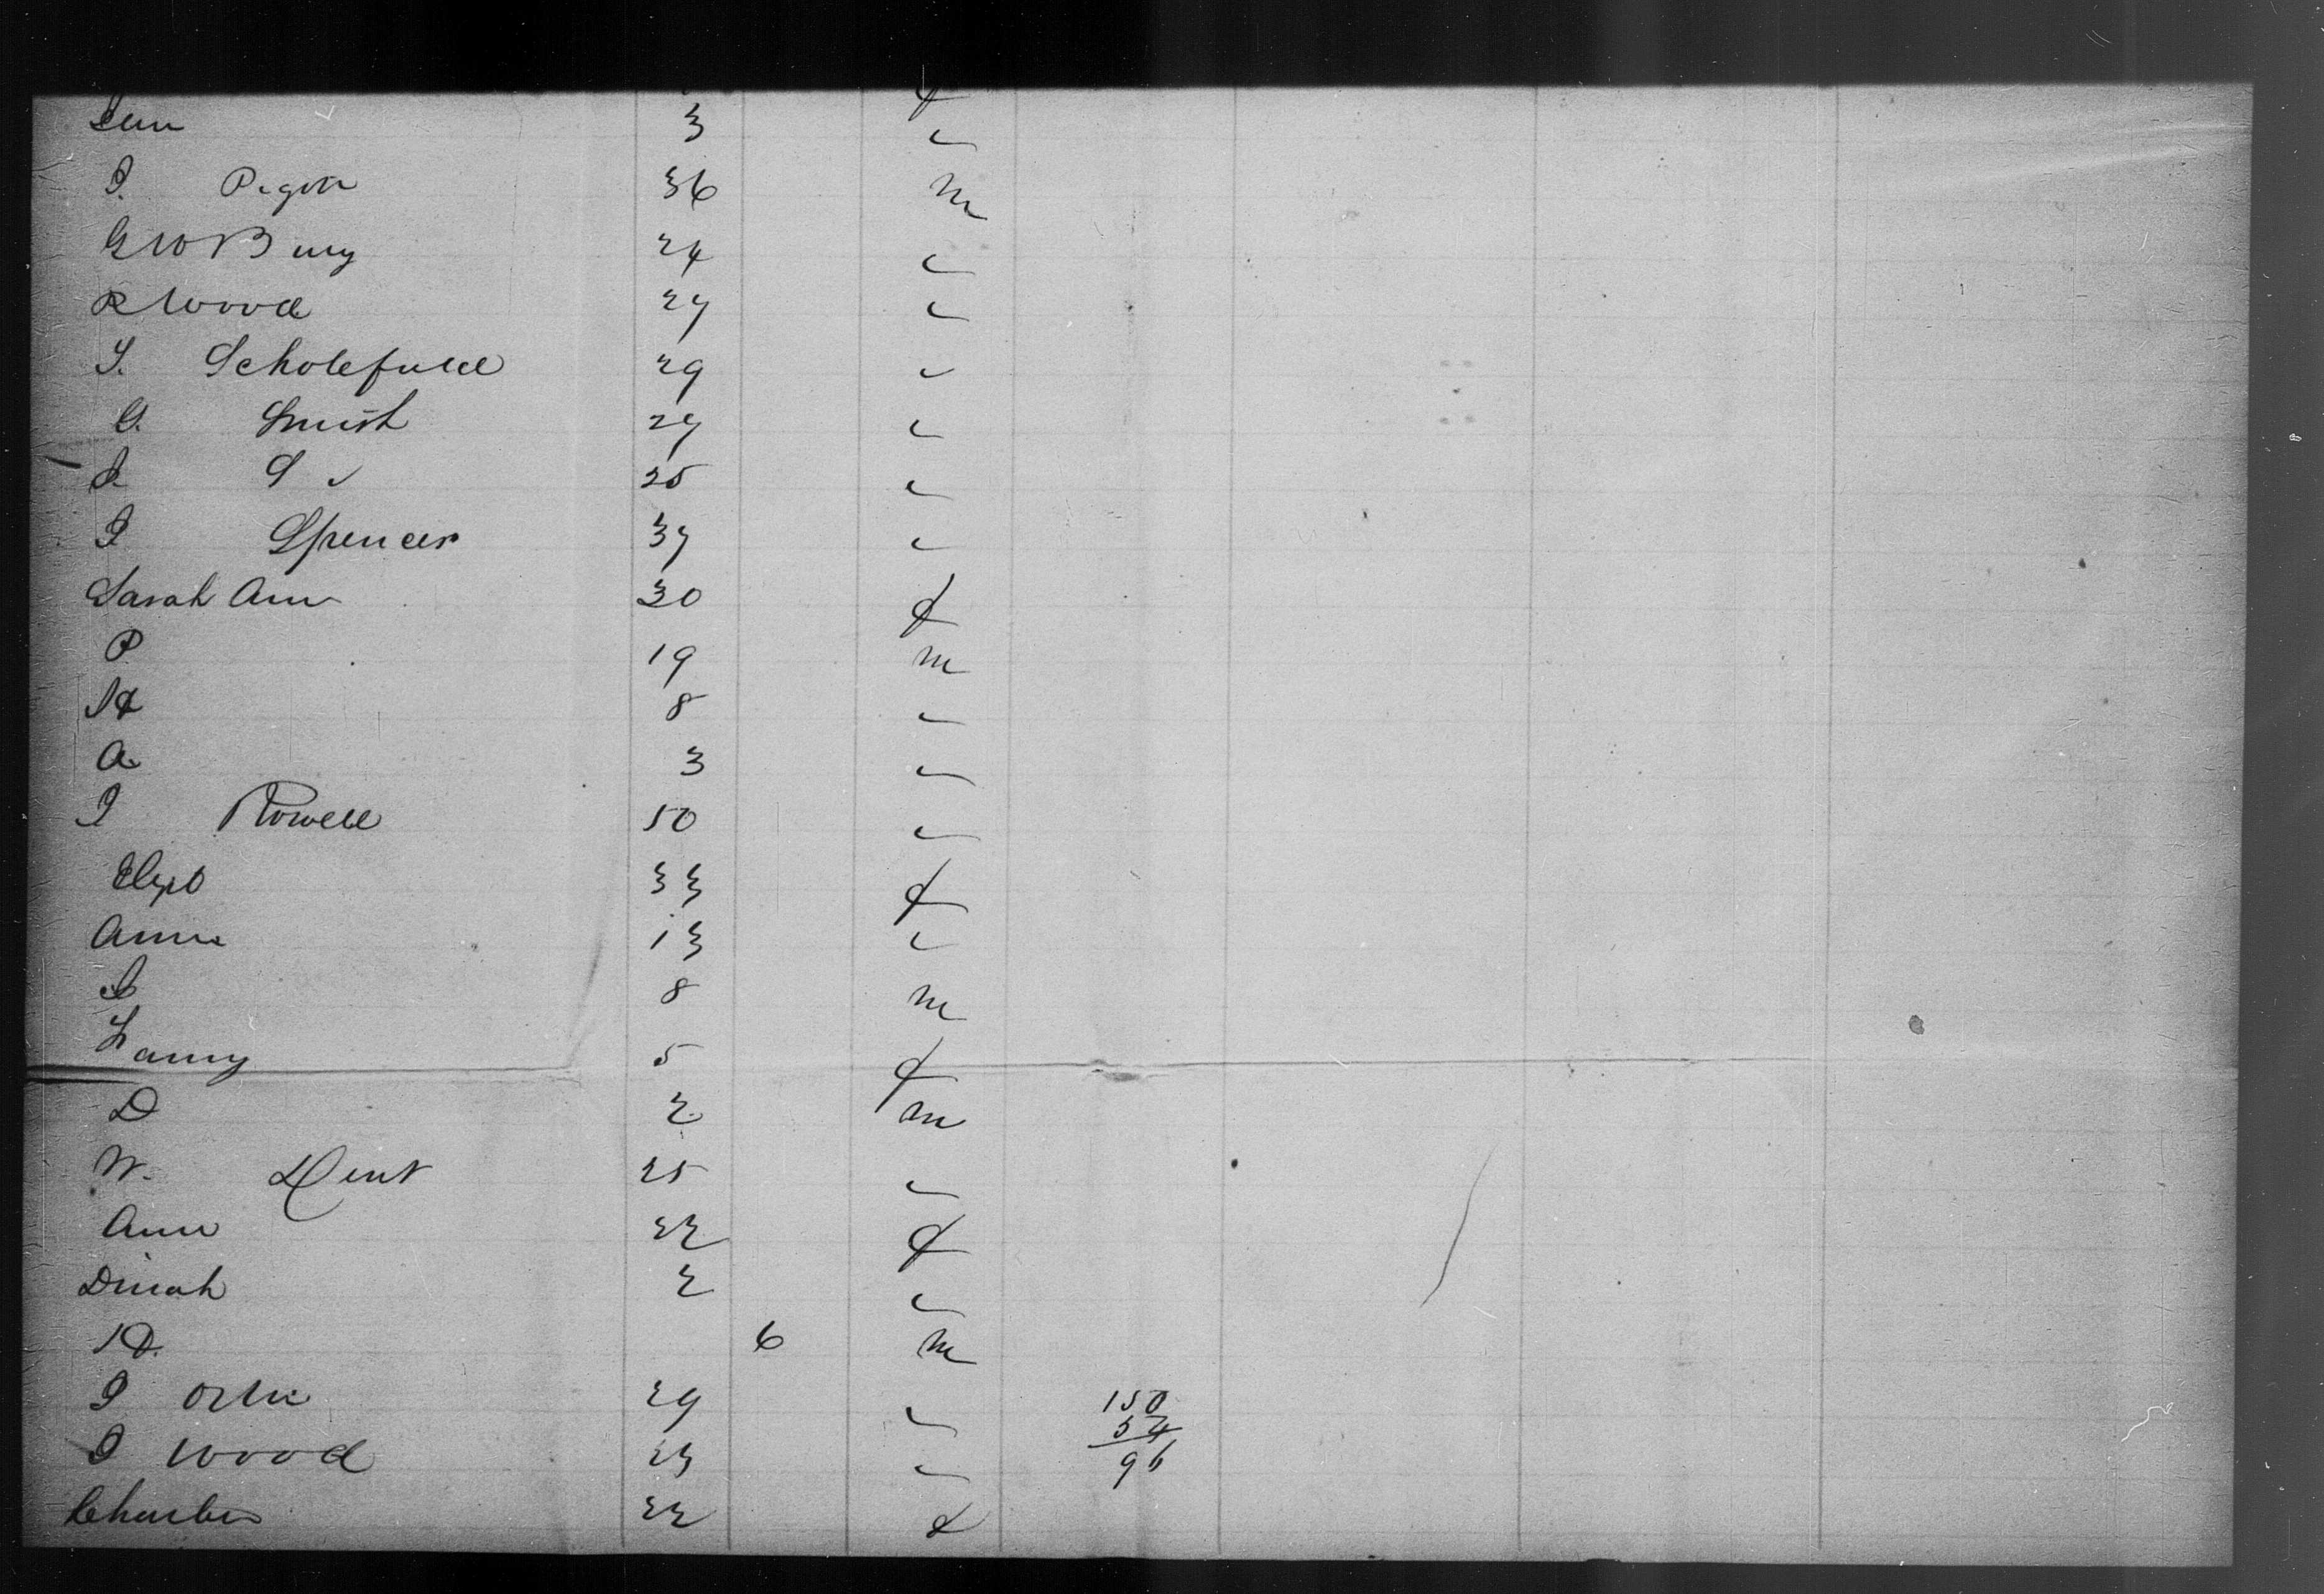 3 "
I. Pigott 36 m
G W B ury 24 "
R Wood 27 "
S. Scholefield 29 "
G. Smith 29 "
S. 25 "
I Spencer 37 "
Sarah Ann 30 f
P 19 m
H 8 "
A. 3 "
I Rowell 50 "
33 f
Annie 13 "
S 8 m
Fanny 5 f
D 2 m
W. Dent 25 "
Ann 22 f
Dinah 2 "
D. 6 m
I 29 " 150
54
I Wood 23 " 96
22 f